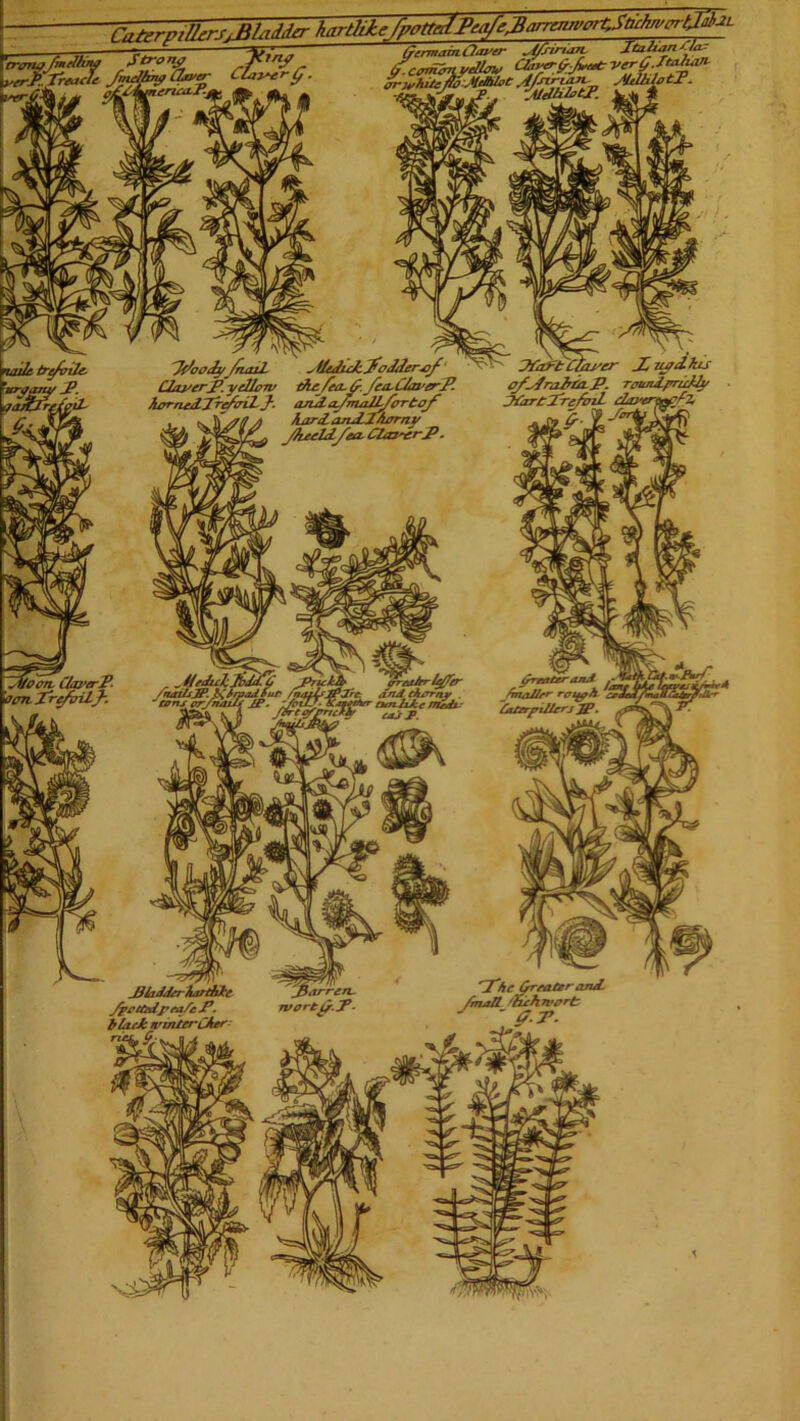 Caterpillers, Bladder hartlike spotted Pease, Barrenwort, Stichwort, Tab. 21.
smelling
ver P. Treacle
ver G.
Strong
smelling Claver
of America P.
King
Claver G.
Germain Claver
G. comõn yellow
or white flo: Melilot
P.
Assirian
Claver G. sweet
Assirian
Melilot P.
Italian Cla-
ver G. Italian
Melilot P.
naile trefoile
P.
Woody snail
Claver P. yellow
horned Trefoil J.
Medick Fodder of
the sea G. sea Claver P.
and a small sort of
hard and Thorny
sheeld sea Claver P.
Hart Claver
of Arabia P.
Hart Trefoil
G.
Lugdhis
round prickly
claver
sort
Moon Claver P.
oon Trefoil J.
Medick Fodd. G
snails P.
tons or snails P.
Prickly
sort of prickly
snails P.
greater lesser
and thorny
tun like medi-
cas P.
Greater and
smaller rough
Caterpillers P.
P.
Bladder hartlike
spotted pease P.
black winter Cher-
ries G.
Barren-
wort G. P.
The Greater and
small stichwort
G. P.